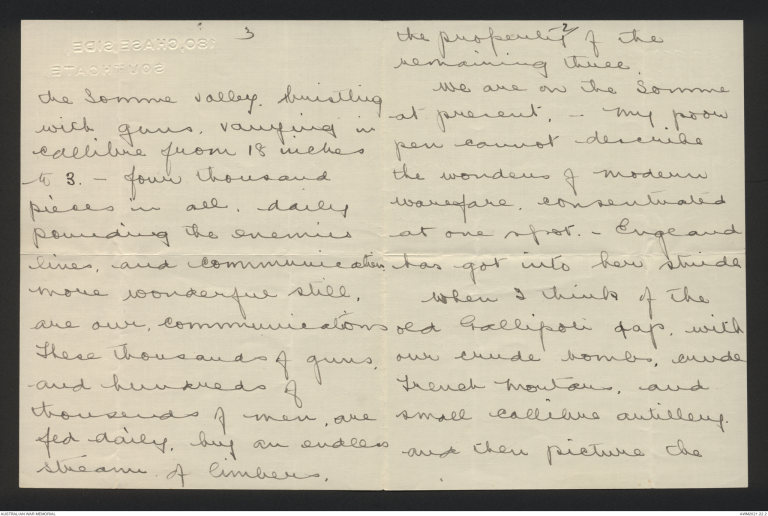 3
the Somme valley. bristling
with guns, varying in
callibre from 18 inches
to 3. - four thousand
pieces in all. daily
pounding the enemies
lines, and communication
more wonderful still,
are our, communications
These thousands of guns,
and hundreds of
thousands of men, are
fed daily, by an endless
stream of limbers.
2
the property of the
remaining three.
We are on the Somme
at present. - My poor
pen cannot describe
the wonders of modern
warefare. consentrated
at one spot. - England
has got into her stride
When I think of the
old Gallipoli days, with
our crude bombs, crude
Trench Mortars, and
small callibre artillery.
and then picture the
180, CHASE SIDE,
SOUTHGATE.
AUSTRALIAN WAR MEMORIAL
AWM2021.22.2